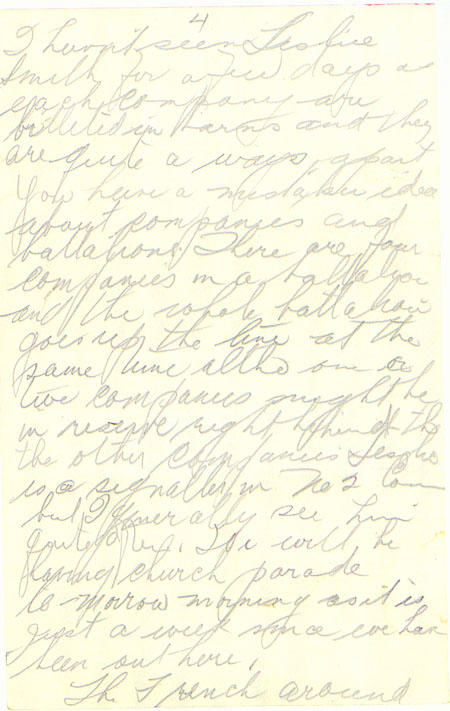 4
I havn't seen Leslie
Smith for a few days as
each company are
billeted in barns and they
are quite a ways apart
You have a mistaken idea
about companies and
battalions. There are four
companies in a battalion
and the whole battalion
goes up the line at the
same time altho one or
two companies might be
in reserve right behind the
the other companies Leslie
is a signaller in No 2 Com
but I generally see him
quite often. We will be
having church parade
to morrow morning as it is
just a week since we have
been out here.
The French around